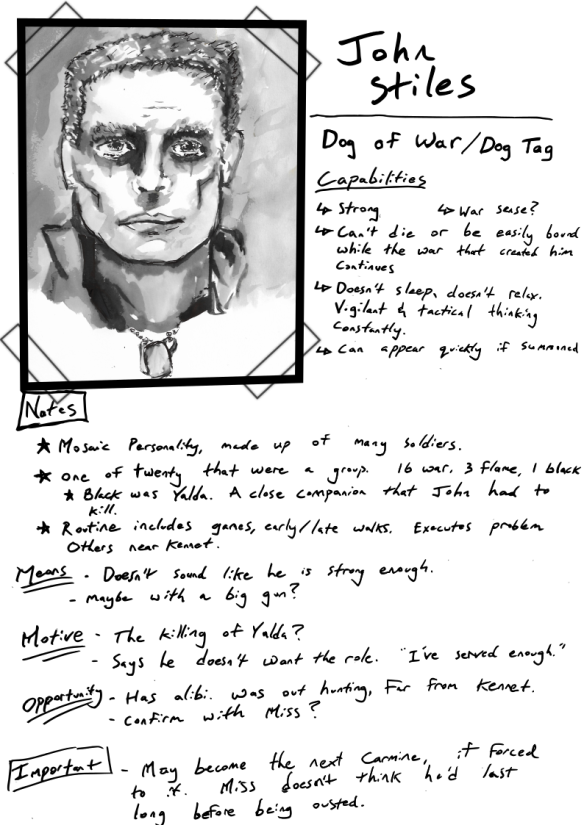 John
Stiles
Dog of War/Dog Tag
Capabilities
↳ Strong ↳ War sense?
↳ Can't die or be easily bound
while the war that created him
continues
↳ Doesn't sleep, doesn't relax.
Vigilant & tactical thinking
constantly.
↳ Can appear quickly if summoned
Notes
★ Mosaic Personality, made up of many soldiers.
★ One of twenty that were a group. 16 war, 3 flame, 1 black
★ Black was Yalda. A close companion that John had to
kill.
★ Routine includes games, early/late walks. Executes problem
Others near Kennet.
Means - Doesn't sound like he is strong enough.
- Maybe with a big gun?
Motive - The killing of Yalda?
- Says he doesn't want the role. "I've served enough."
Opportunity - Has alibi. Was out hunting, Far from Kennet.
- Confirm with Miss?
Important - May become the next Carmine, if forced
to it. Miss doesn't think he'd last
long before being ousted.